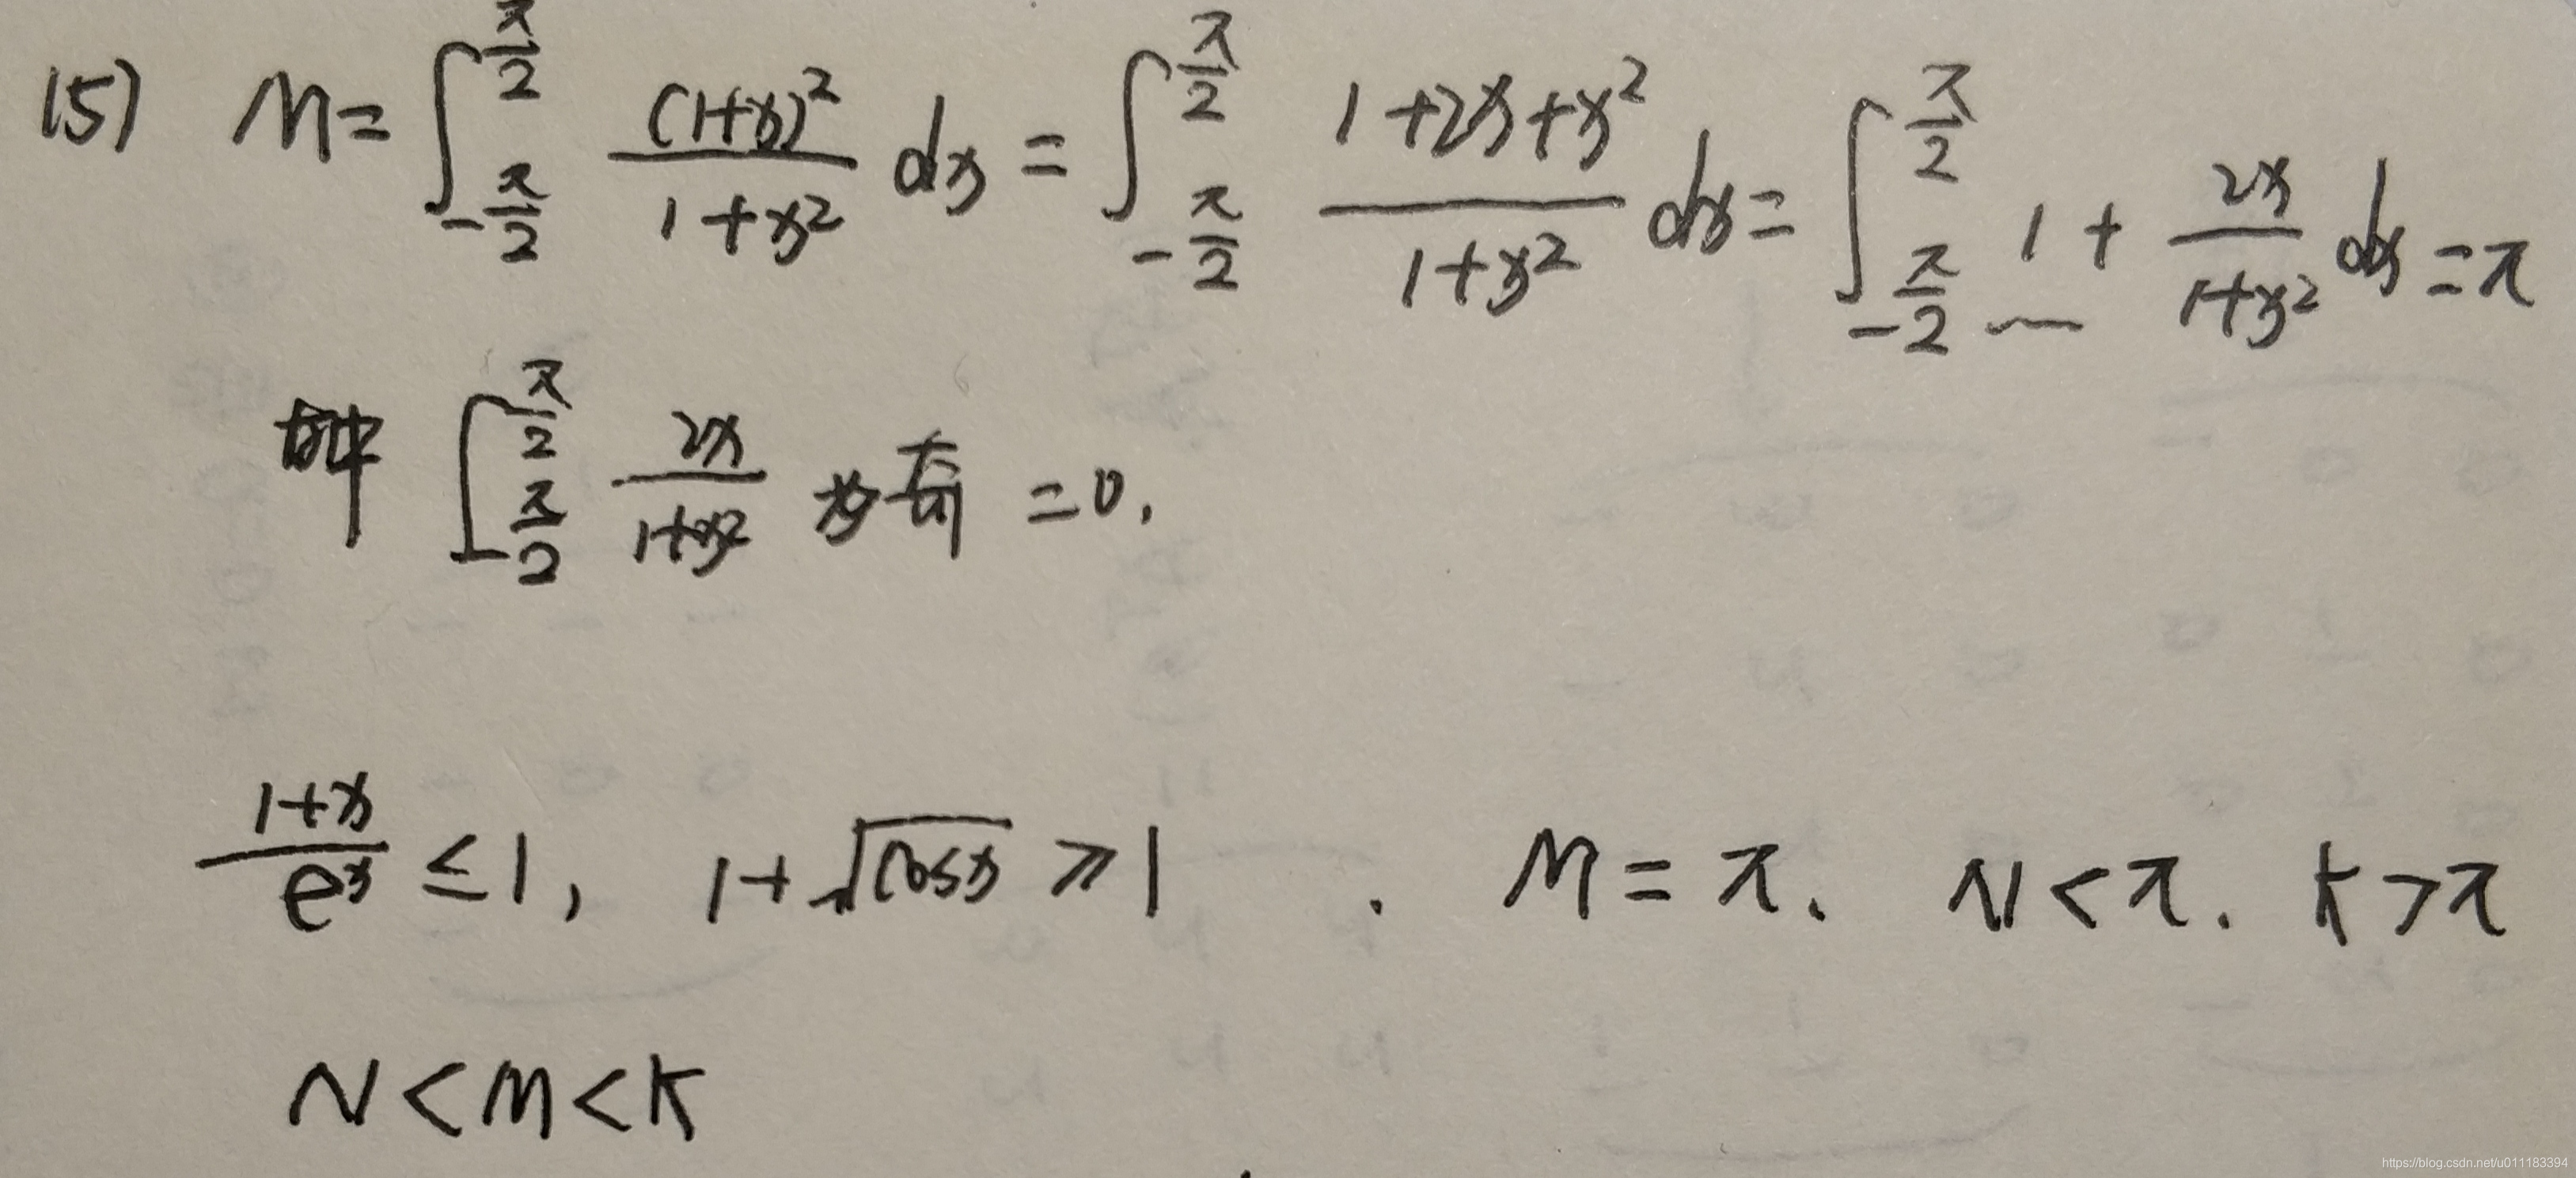 (5) M = ∫_{-π/2}^{π/2} (1+x)²/(1+x²) dx = ∫_{-π/2}^{π/2} (1+2x+x²)/(1+x²) dx = ∫_{-π/2}^{π/2} 1 + 2x/(1+x²) dx = π
∫_{-π/2}^{π/2} 2x/(1+x²) 为奇 = 0.
(1+x)/e^x ≤ 1, 1+√cosx ≥ 1. M = π. N < π. K > π
N < M < K
https://blog.csdn.net/u011183394